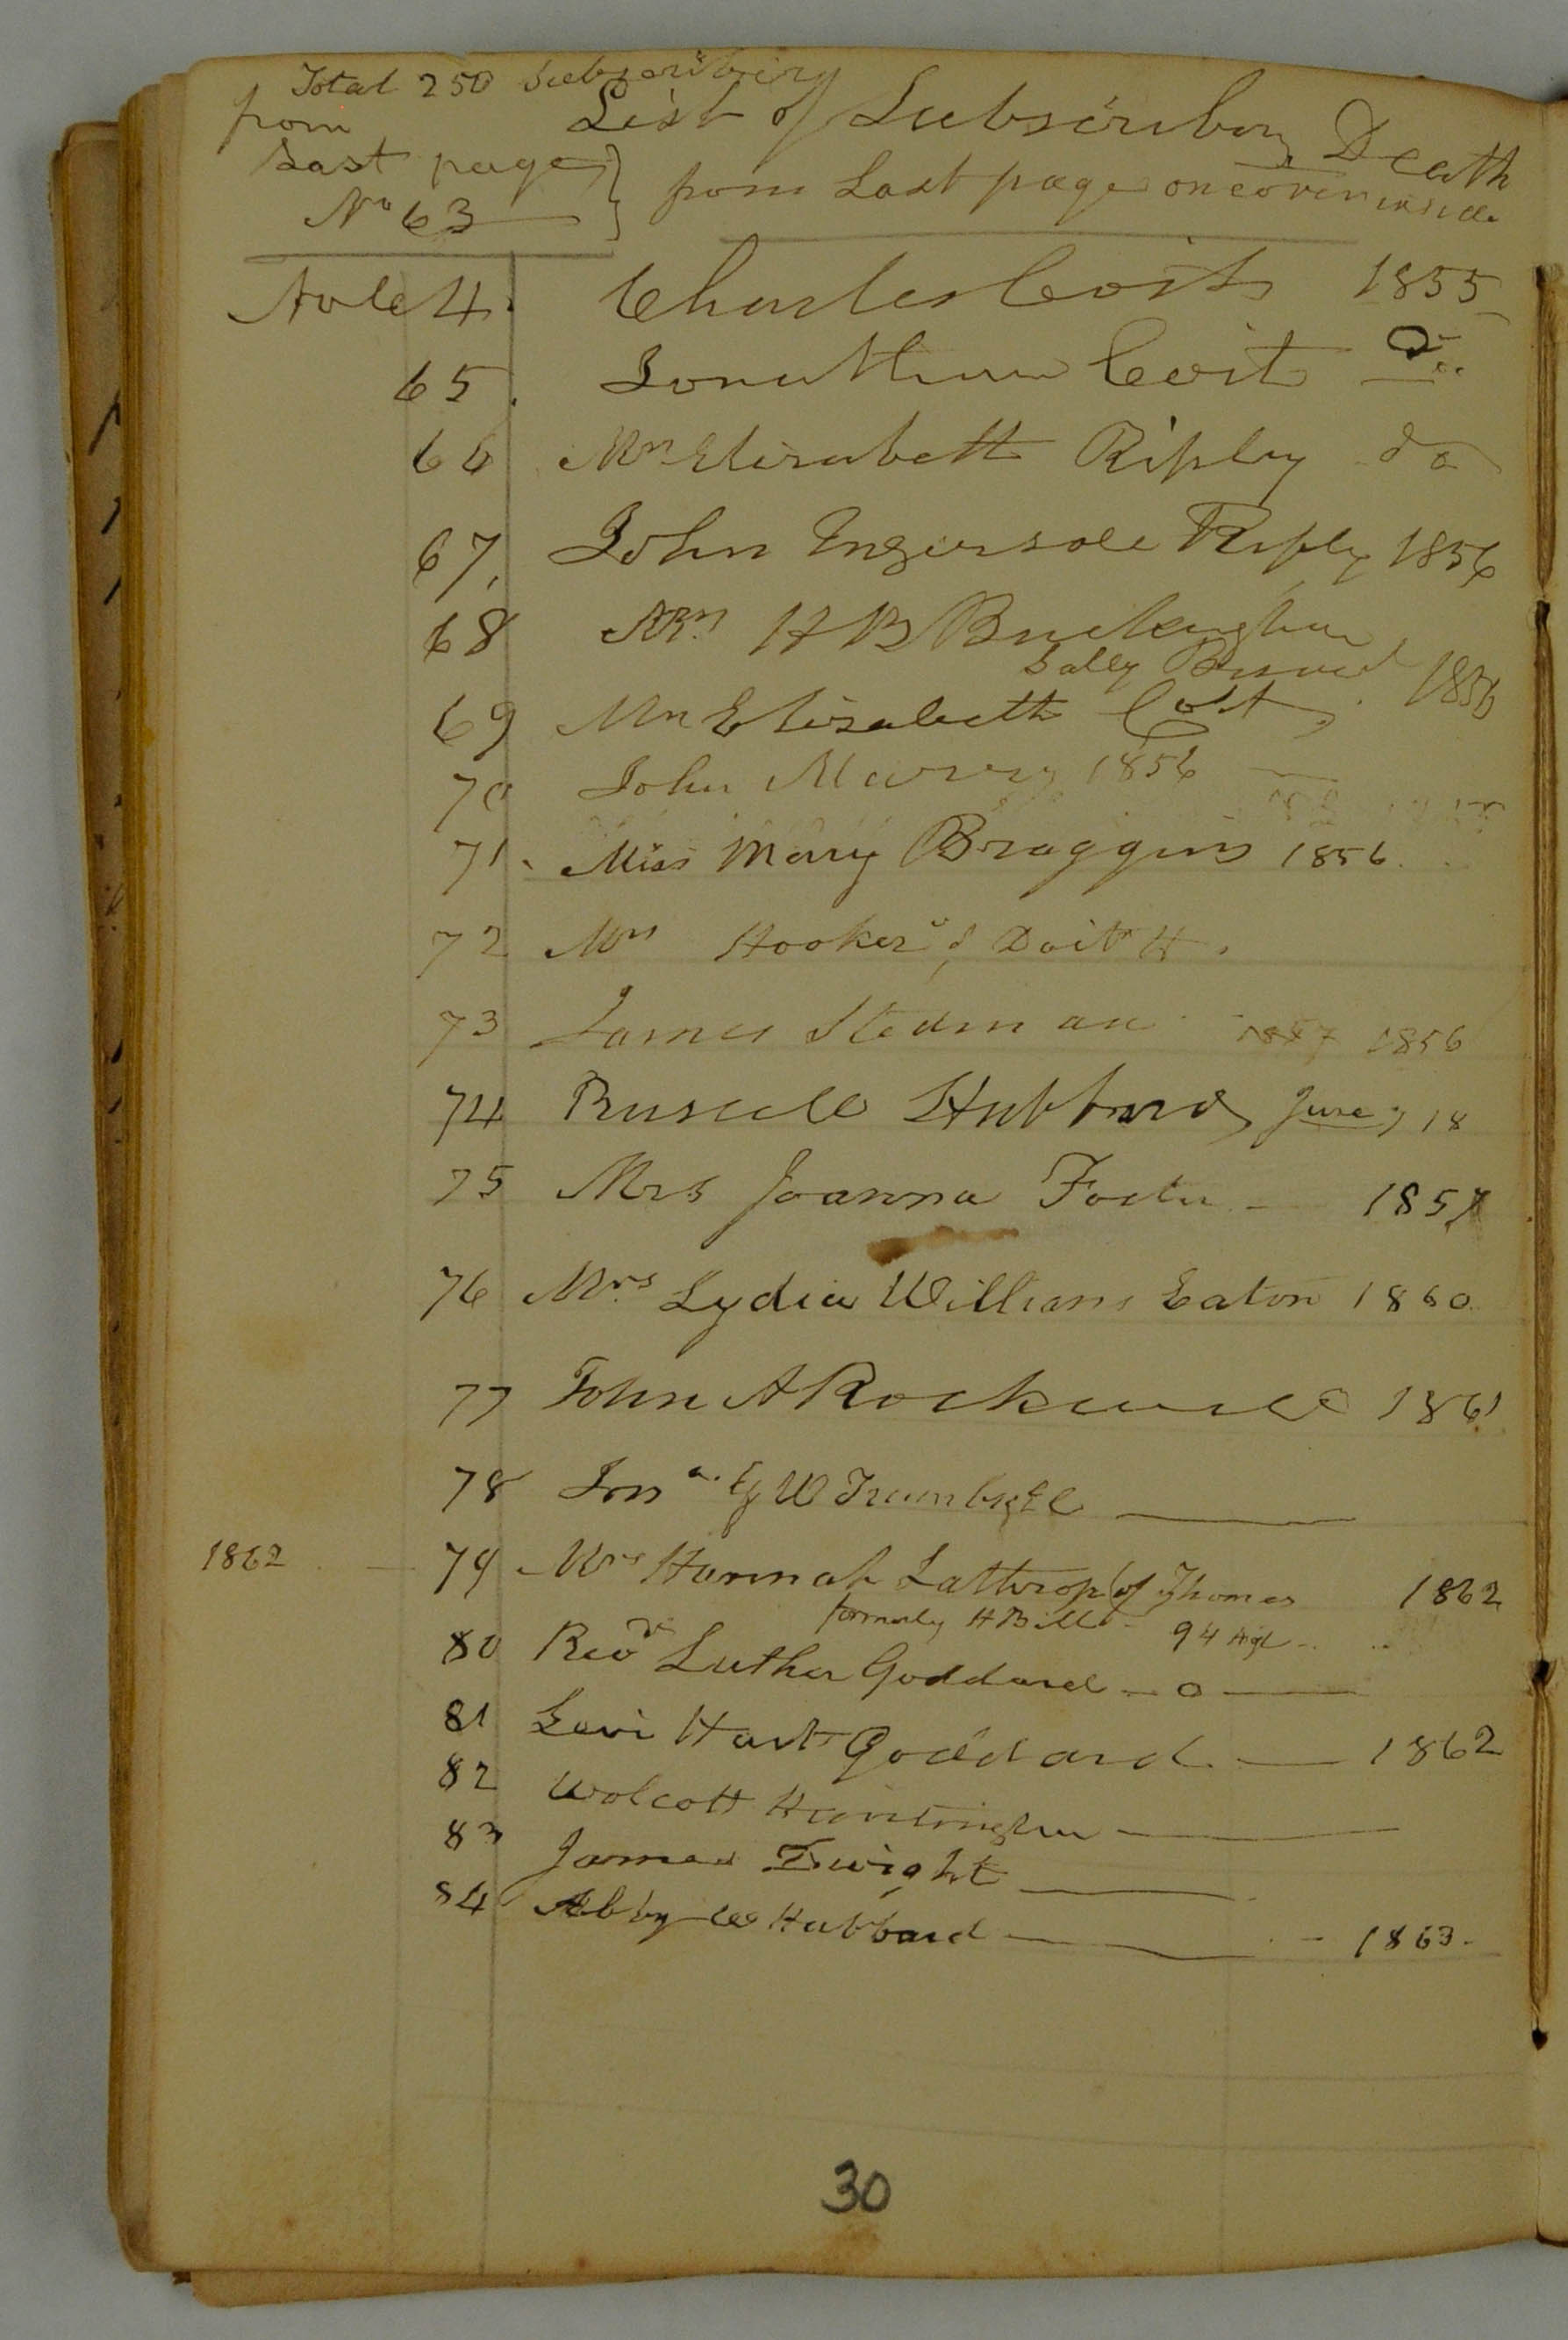 Total 250 Subscribing
from List of Subscribing Death
Last page
No 63 } from Last page on cover inside
64. Charles Coit 1855
65. Jonathan Coit Do
66 Mrs Elisabeth Ripley do
67. John Ingersole Ripley 1856
68 Mrs H B Buckingham
Sally 1856
69 Mrs Elisabeth Coit
70 John 1856
71. Miss Mary Braggins 1856
72 Mrs Hooker
73 James Stedman 1857 1856
74 Russell Hubbard June 7 18
75 Mrs Joanna 1857
76 Mrs Lydia Williams Eaton 1860
77 John A Rockwell 1861
78 G W Trumbull
1862 79 Mrs Hannah Lathrop of Thomas 1862
formerly H Bill 94 Age
80 Revd Luther Goddard
81 Levi Hart Goddard 1862
82 Wolcott Huntington
83 James Dwight
84 Abby Hubbard 1863
30